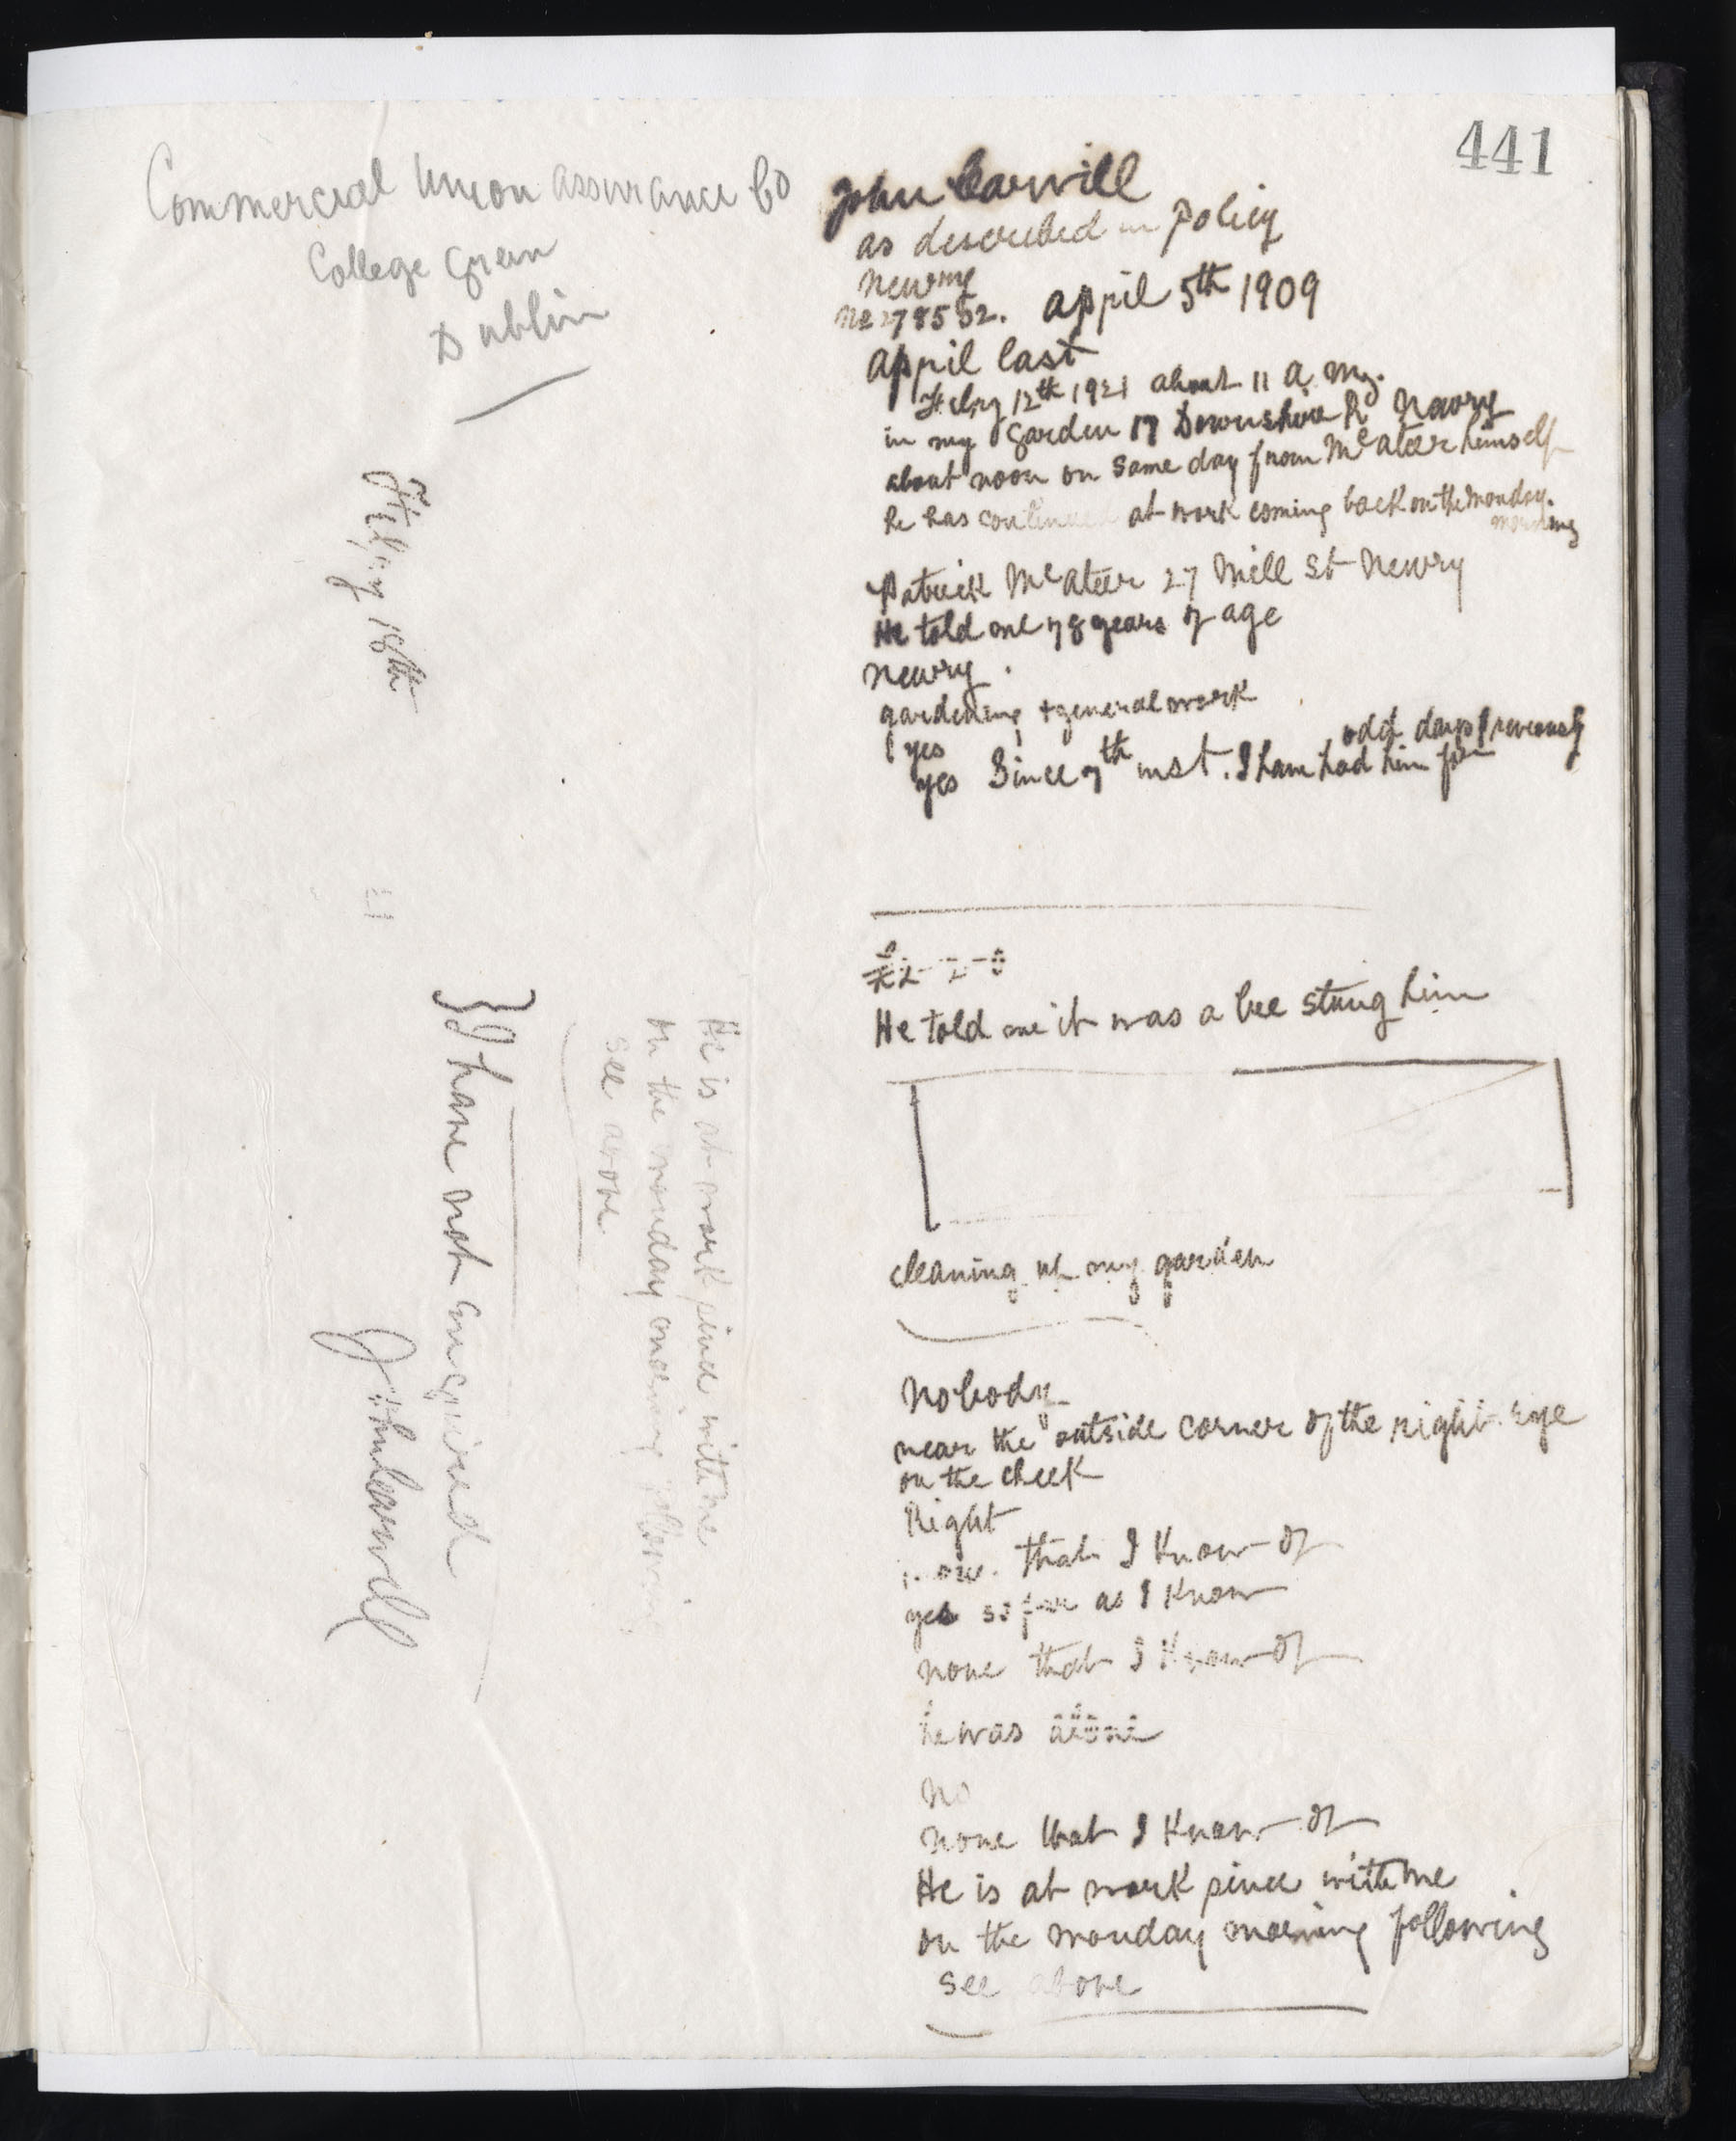 441
Commercial Union assurance Co
College Green
Dublin
John Carvill
as described in policy
Newry
No 278552. april 5th 1909
april last
Feby 12th 1921 about 11 a.m.
in my garden 17 Downshire Rd Newry
about noon on same day from McAteer himself
he has continued at work coming back on the monday
morning
Patrick McAteer 27 Mill St Newry
He told me 78 years of age
Newry.
gardening + general work
yes
odd days previously
yes Since 7th inst. I have had him for
He told me it was a bee stung him
cleaning up my garden
Nobody
near the outside corner of the right eye
on the cheek
Right
none that I know of
yes so far as I know
none that I know of
he was alone
no
none that I know of
He is at work since with me
on the monday morning following
see above
Feby 18th
21
He is at work since with me
on the monday morning following
see above
} I have not enquired
John Carvill